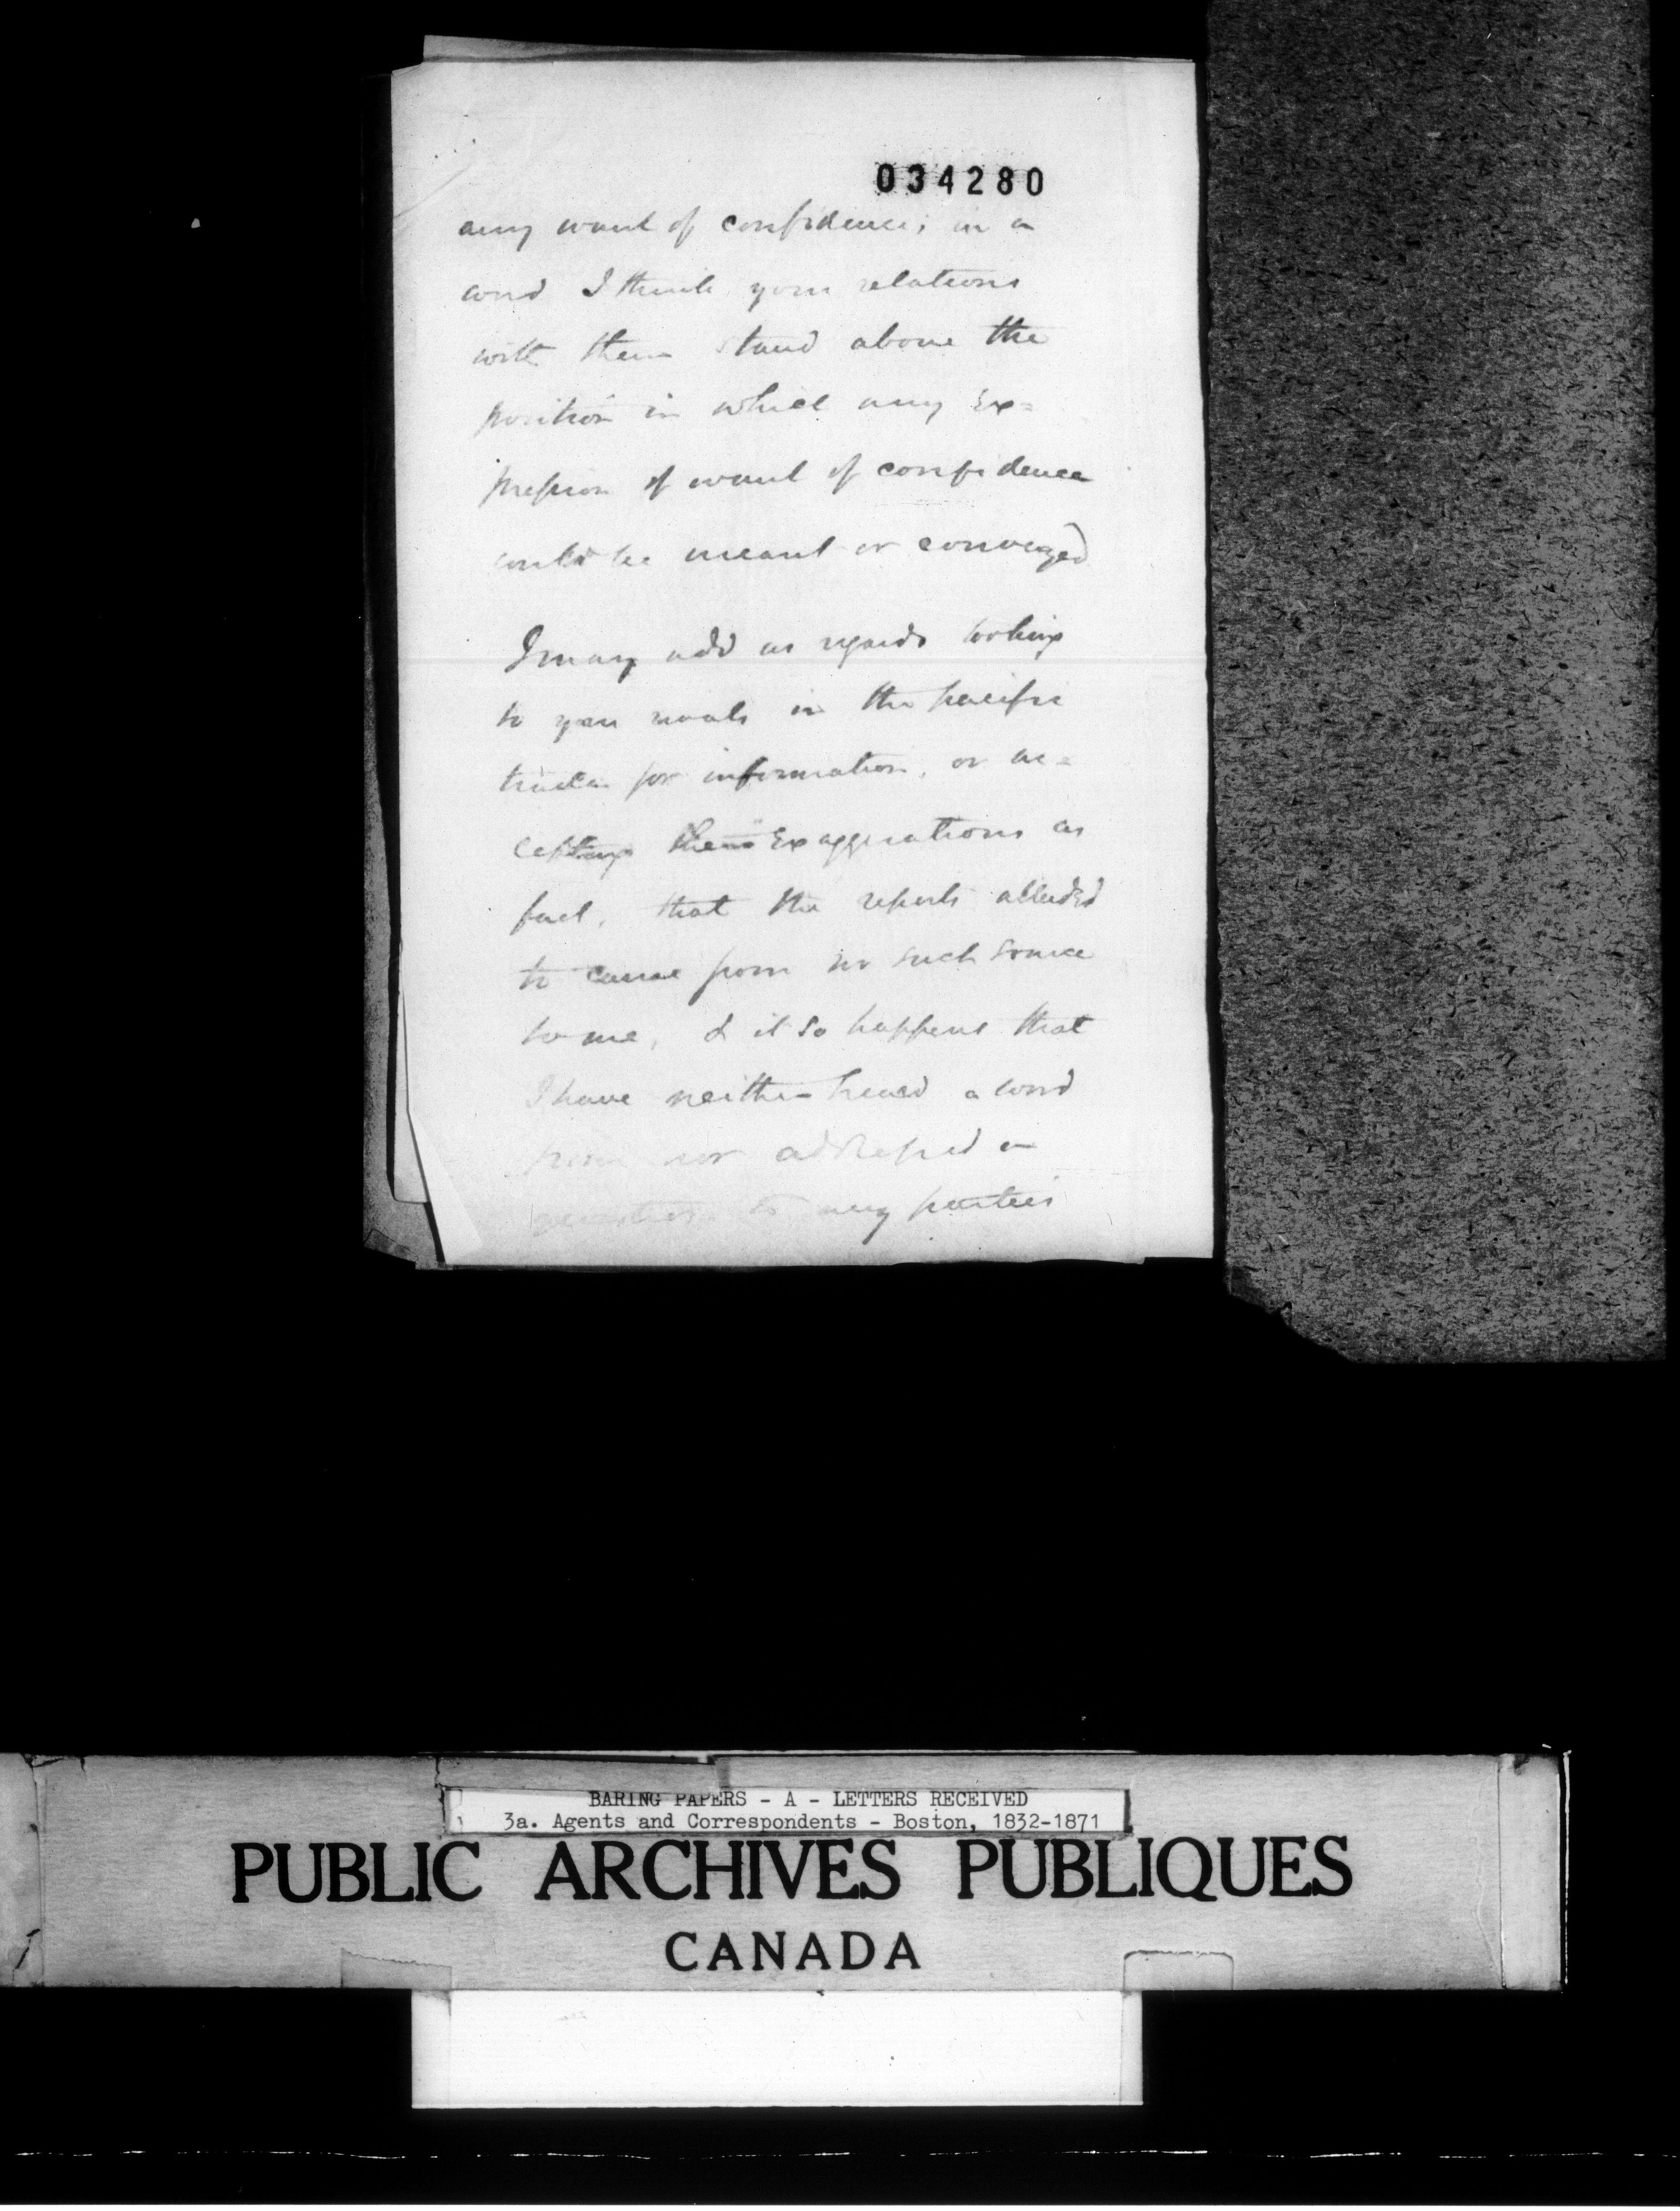 034280
any want of confidence; in a
word I think your relations
with them stand above the
position in which any ex=
pression of want of confidence
could be meant or conveyed
I may add as regards looking
to your rivals in the pacific
trade for information, or ac=
cepting their exaggerations as
fact, that the reports alluded
to came from no such source
to me, & it so happens that
I have neither heard a word
from nor addressed a
question to any parties
BARING PAPERS - A - LETTERS RECEIVED
3a. Agents and Correspondents - Boston, 1832-1871
PUBLIC ARCHIVES PUBLIQUES
CANADA